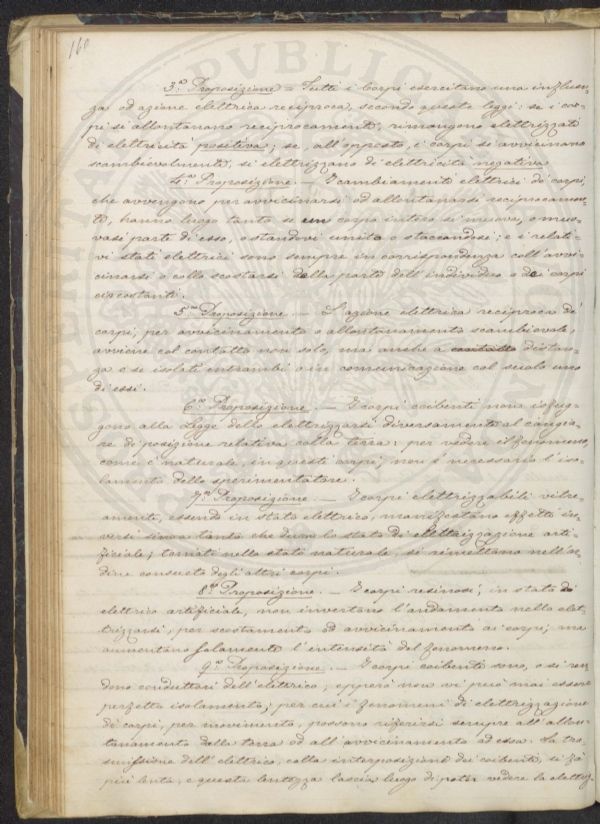 160
3.ª Proposizione = Tutti i Corpi esercitano una influen-
za od azione elettrica reciproca, secondo queste leggi: se i cor-
pi si allontanano reciprocamente, rimangono elettrizzati
di elettricità positiva; se, all'opposto, i corpi si avvicinano
scambievolmente, si elettrizzano di elettricità negativa.
4.ª Proposizione. — I cambiamenti elettrici de' corpi,
che avvengono per avvicinarsi od allontanarsi reciprocamen-
te, hanno luogo tanto se un corpo intero si muova, o muo-
vasi parte di esso, o standovi unita o staccandosi; e i relati-
vi stati elettrici sono sempre in corrispondenza coll'avvi-
cinarsi o collo scostarsi della parte dell'individuo o dei corpi
circostanti.
5.ª Proposizione. — L'azione elettrica reciproca de'
corpi, per avvicinamento o allontanamento scambievole,
avviene col contatto non solo, ma anche a contatto distan-
za e se isolati entrambi o in comunicazione col suolo uno
di essi.
6.ª Proposizione. — I corpi coibenti non isfug-
gono alla legge dello elettrizzarsi diversamente al cangia-
re di posizione relativa colla terra: per vedere il fenomeno,
come è naturale, in questi corpi, non è necessario l'iso-
lamento dello sperimentatore.
7.ª Proposizione. — I corpi elettrizzabili vitre-
amente, essendo in stato elettrico, manifestano effetti in-
versi sino a tanto che dura lo stato di elettrizzazione arti-
ficiale; tornati nello stato naturale, si rimettono nell'or-
dine consueto degli altri corpi.
8.ª Proposizione. — I corpi resinosi, in stato di
elettrico artificiale, non invertono l'andamento nello elet-
trizzarsi, per scostamento od avvicinamento ai corpi; ma
aumentano solamente l'intensità del fenomeno.
9.ª Proposizione. — I corpi coibenti sono, o si ren-
dono conduttori dell'elettrico, epperò non vi può mai essere
perfetto isolamento; per cui i fenomeni di elettrizzazione
di corpi, per movimento, possono riferirsi sempre all'allon-
tanamento dalla terra od all'avvicinamento ad essa. La tra-
smissione dell'elettrico, colla interposizione dei coibenti, si fa
più lenta, e questa lentezza lascia luogo di poter vedere la elettriz-